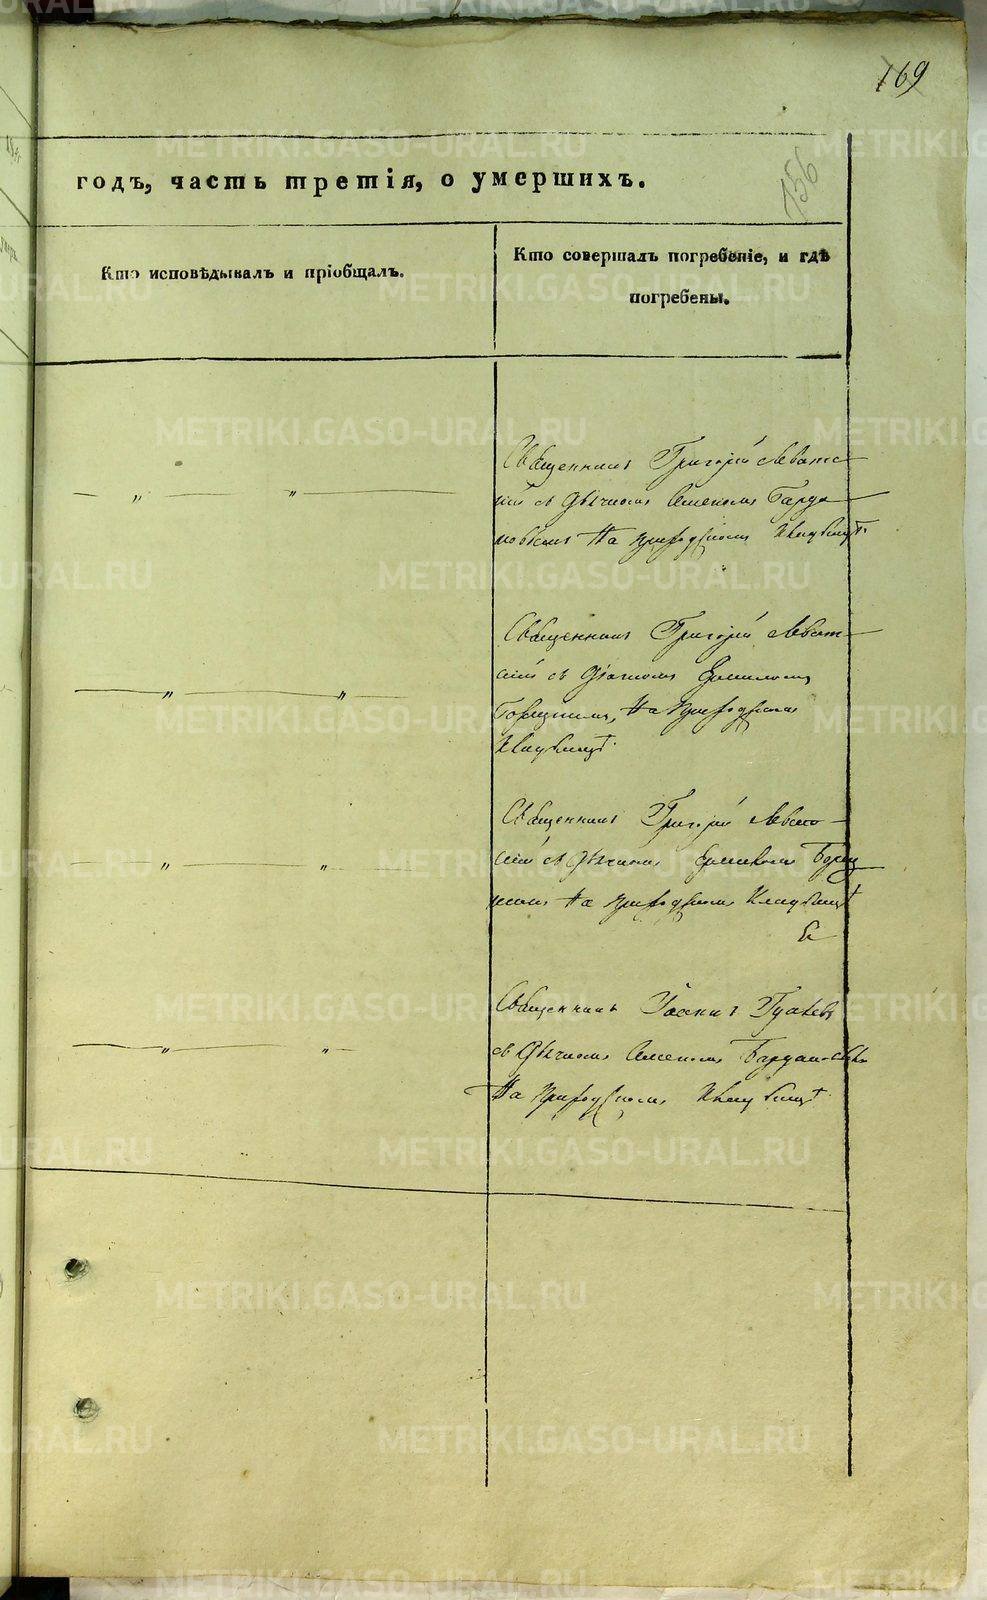 169
156
годъ, часть третія, о умершихъ.
Кто исповѣдывалъ и пріобщалъ.
Кто совершалъ погребеніе, и гдѣ
погребены.
Священникъ Григорій Левит-
скій съ Дьячкомъ Семеномъ
На приходскомъ Кладбищѣ.
Священникъ Григорій Левит-
скій съ
На приходскомъ
Кладбищѣ.
Священникъ Григорій Левит-
скій съ Дьячкомъ
На приходскомъ Кладбищѣ
Священникъ Іоаннъ
съ Дьячкомъ Семеномъ
На приходскомъ Кладбищѣ.
METRIKI.GASO-URAL.RU